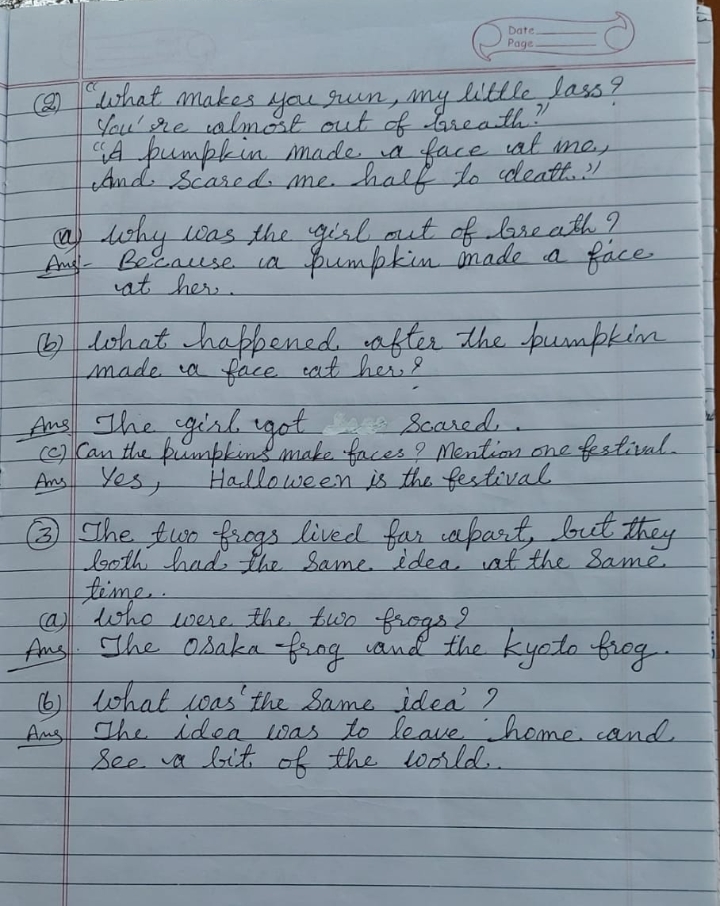 Date
Page
(2) "What makes you run, my little lass?
You're almost out of breath."
"A pumpkin made a face at me,
And scared me half to death."
(a) Why was the girl out of breath?
Ans- Because a pumpkin made a face
at her.
(b) What happened after the pumpkin
made a face at her?
Ans The girl got scared.
(c) Can the pumpkins make faces? Mention one festival.
Ans Yes, Halloween is the festival
(3) The two frogs lived far apart, but they
both had the same idea at the same
time.
(a) Who were the two frogs?
Ans. The Osaka-frog and the Kyoto frog.
(b) What was 'the same idea'?
Ans The idea was to leave home and
see a bit of the world.